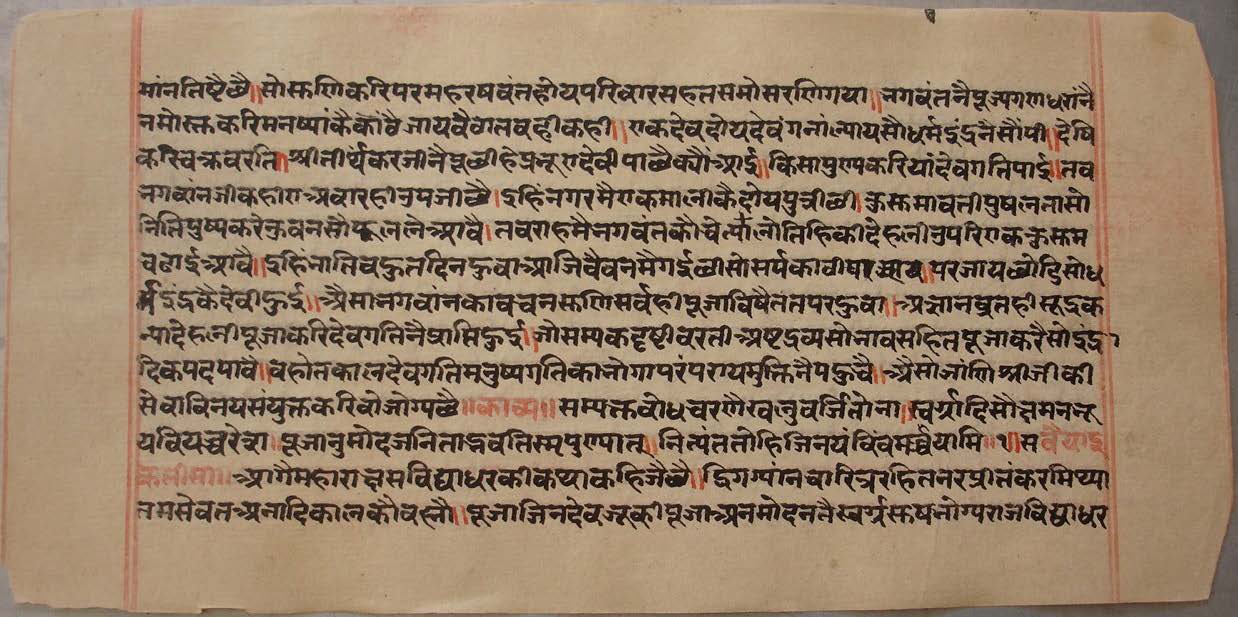 मांनतिष्टैछै॥ सोसुणिकरिपरमहरषवंतहोयपरिवारसहतसमोसरणिगया॥ भगवंतनैपूज्यगणधरांनै
नमोस्तुकरिमनुष्यांकैकोठैजायबैठातबहीकही॥ एकदेवदोयदेवंगनांल्यायसौधर्मइंद्रनैसौंपी॥ देषि
श्रीतीर्थंकरजीनैपूछीहेप्रभूएदेवीपाछैक्यौंआई॥ किसापुण्यकरियांदेवगतिपाई॥ तब
भगवांनजीकहीएअबारहीउपजीछै॥ इहिनगरमैएकमालीकैदोयपुत्रीछी॥ कुसमावतीपुषलतासो
नितिपुष्पकरंडुवनसौफूललेआवै॥ तबराहमैभगवंतकौचैत्यालोतिहिकीदेहलीउपरिएककुसम
चढाईआवै॥ इहिभातिबहुतदिनहुवाआजिवैवनमैगईछीसोसर्पकाटी परजायछोडिसोध
र्मइंद्रकैदेवीहुई॥ ऐसाभगवांनकाबचनसुणिसर्वहीपूजाविषैततपरहुवा॥ अज्ञानब्रतहीसूद्रक
न्यादेहलीपूजाकरिदेवगतिनैप्राप्तिहुई॥ जोसम्यकदृष्टीवरतीअष्टद्रव्यसोभावसहितपूजाकरैसोइंद्रा
दिकपदपावै॥ बहोतकालदेवगतिमनुष्यगतिकाभोगापरंपरायमुक्तिनैपहुचै॥ ऐसोजांणिश्रीजीकी
सेवाविनयसंयुक्तकरिवोजोग्यछै॥ काव्य॥ सम्यक्तबोधचरणैखलुवर्जितोना॥ स्वर्यादिसौ
पूजानुमोदजनिताद्भवतिस्मपुण्यात्॥ नित्यंततोहिजिनयंविंबमर्च्चयामि॥१॥ सवैयाइ
कतीसा॥ आगैमहाराक्षसविद्याधरकीकथाकहिजैछै॥ द्रिगग्यांनचारित्ररहितनरप्रीतंकरमिथ्या
तमसेवतअनादिकालकौवस्तौ॥ पूजाजिनदेवजूकीपूजाअनमोदनतैस्वर्ग्गसुषभोग्यराजविद्याधर